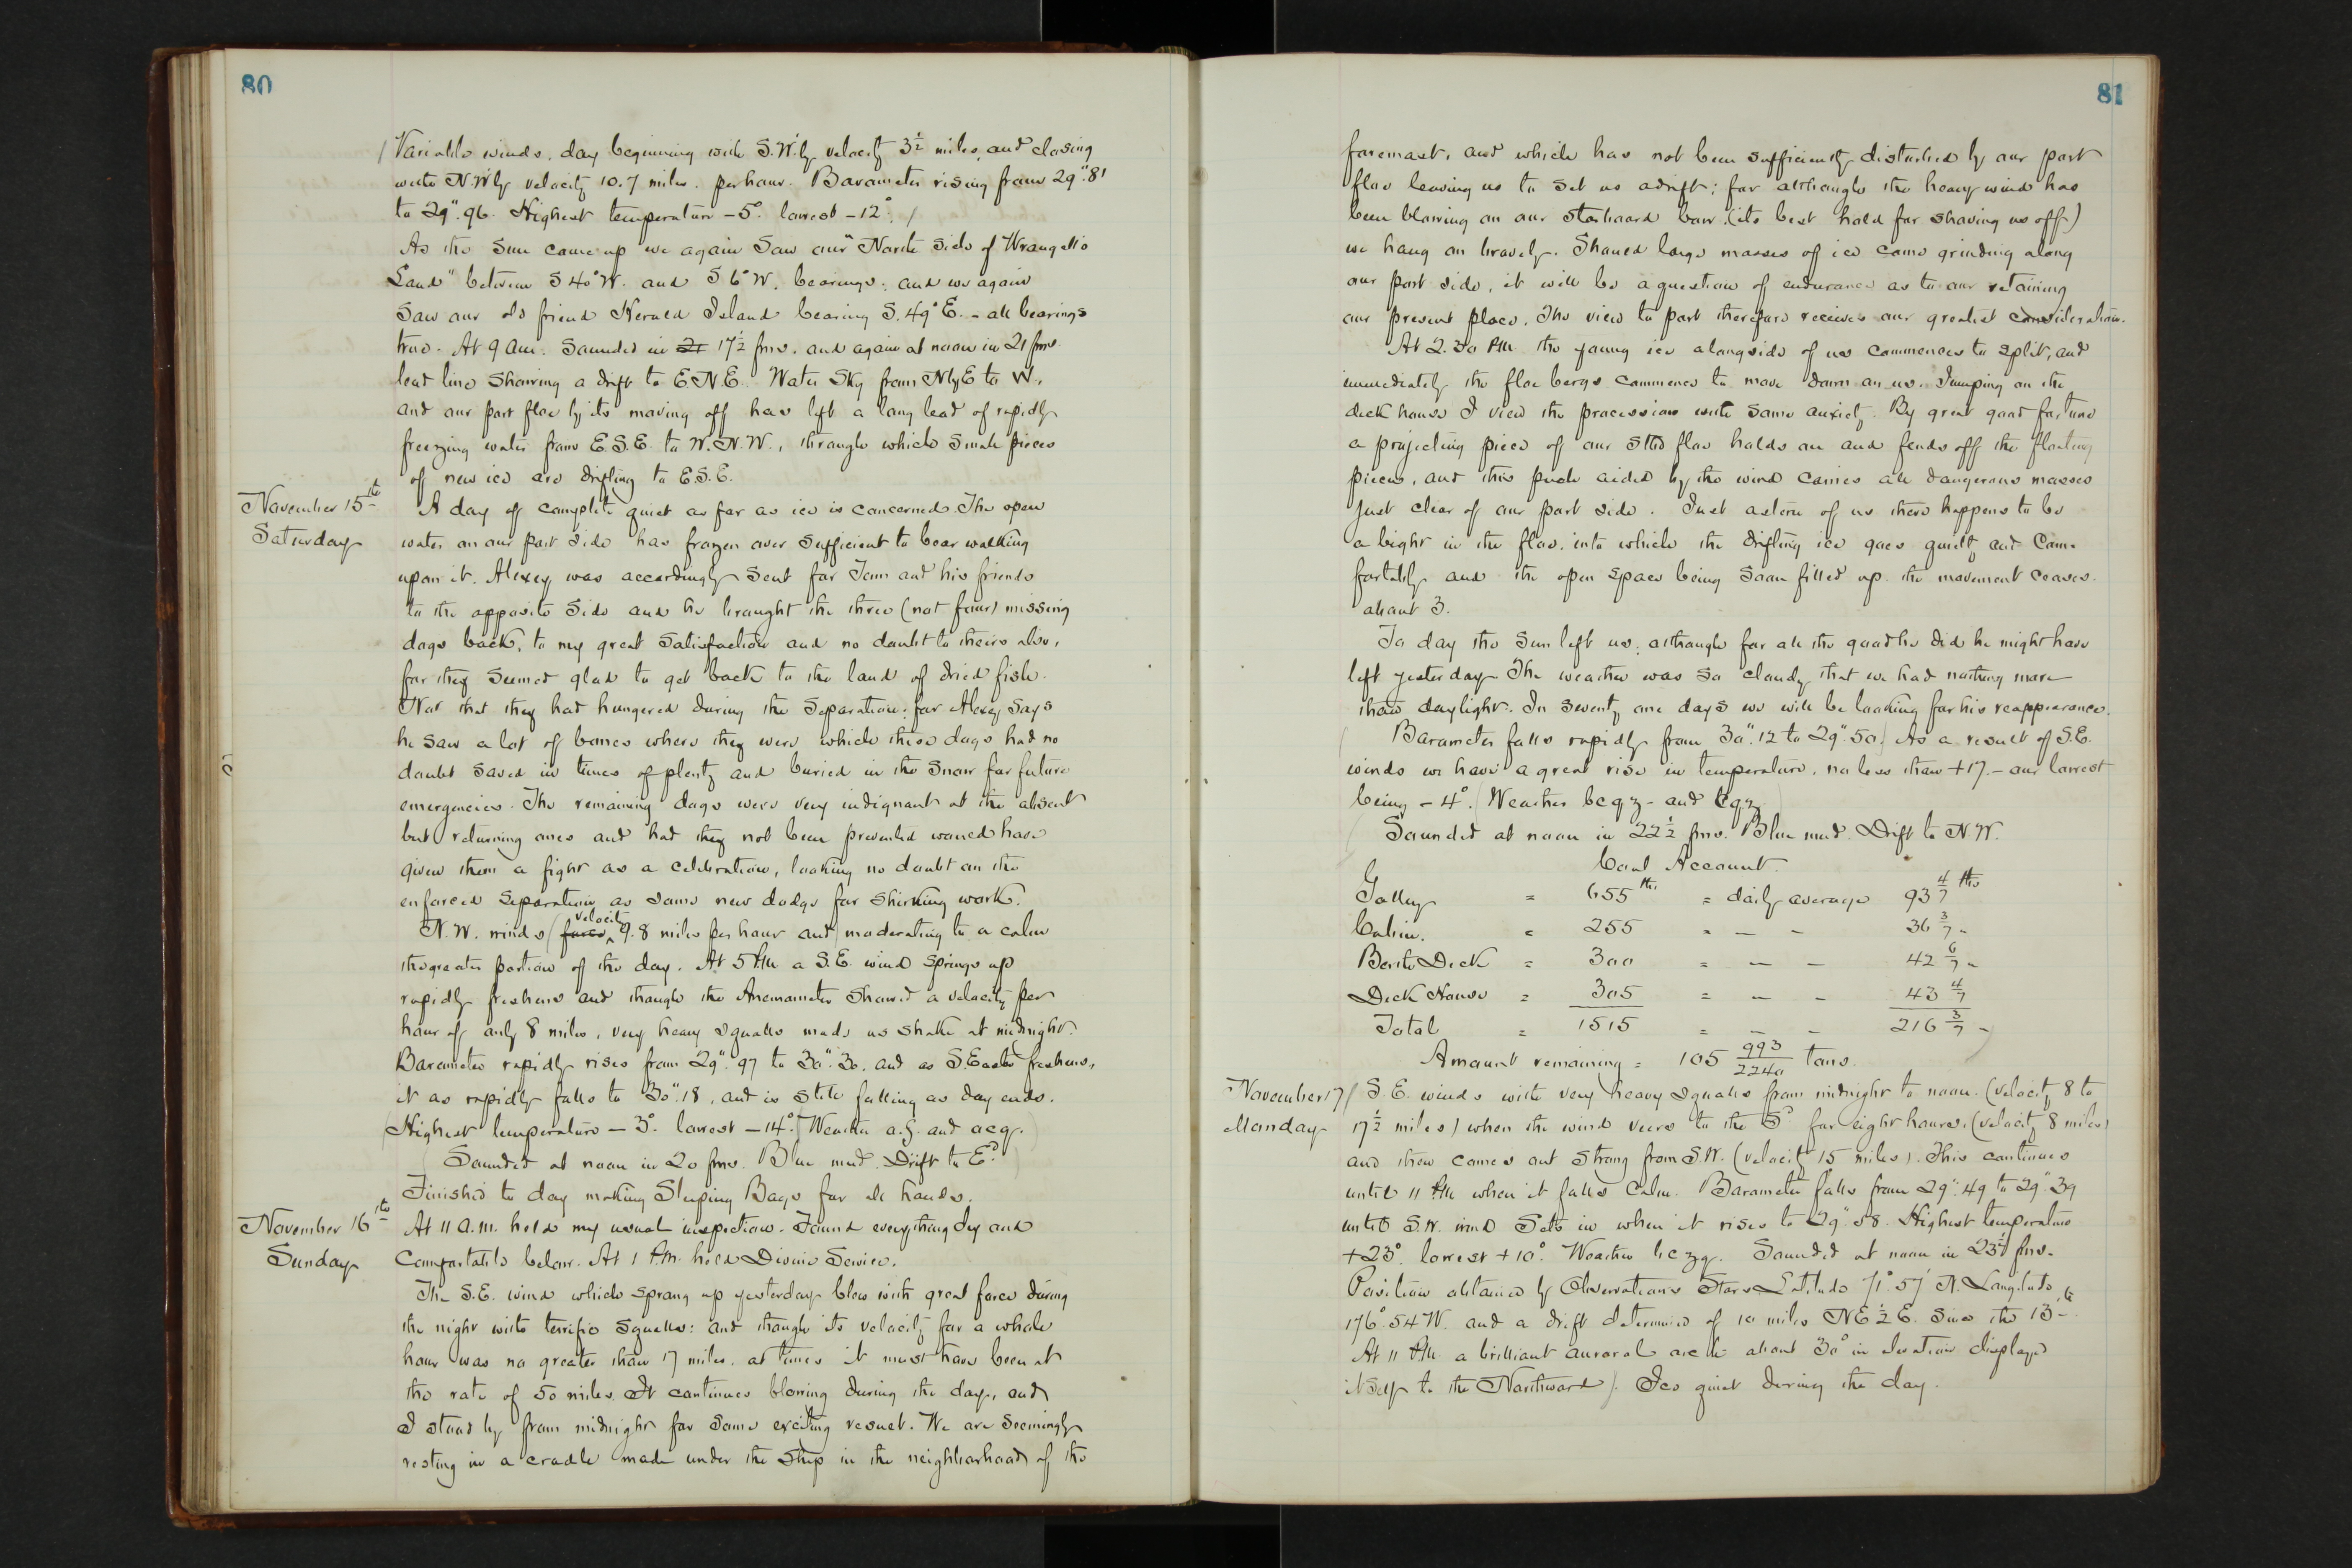 80
Variable winds, day beginning with S.W.ly velocity 3½ miles, and closing
with N.W.ly velocity 10.7 miles per hour. Barometer rising from 29".81
to 29".96. Highest temperature -5°. lowest -12°.
As the Sun came up we again saw our "North Side of Wrangell's
Land" between S 40° W. and S 6° W. bearings; and we again
saw our old friend Herald Island bearing S. 49° E. - all bearings
true. At 9 am. Sounded in 21 17½ fms. and again at noon in 21 fms.
lead line showing a drift to E.N.E. Water Sky from NlyE to W.
and our port floe by its moving off has left a long lead of rapidly
freezing water from E.S.E. to W.N.W., through which small pieces
of new ice are drifting to E.S.E.
November 15th
Saturday
A day of complete quiet as far as ice is concerned. The open
water on our port side has frozen over sufficient to bear walking
upon it. Alexey was accordingly sent for Tom and his friends
to the opposite side and he brought the three (not four) missing
dogs back, to my great satisfaction and no doubt to theirs also,
for they seemed glad to get back to the land of dried fish.
Not that they had hungered during the separation; for Alexey says
he saw a lot of bones where they were which these dogs had no
doubt saved in times of plenty and buried in the snow for future
emergencies. The remaining dogs were very indignant at the absent
but returning ones and had they not been prevented would have
given them a fight as a celebration, looking no doubt on the
enforced separation as some new dodge for shirking work.
N.W. winds (force, velocity 9.8 miles per hour and) moderating to a calm
the greater portion of the day. At 5 PM a S.E. wind springs up
rapidly freshens and though the Anemometer showed a velocity per
hour of only 8 miles, very heavy squalls made us shake at midnight.
Barometer rapidly rises from 29".97 to 30".30. and as S.Easter freshens,
it as rapidly falls to 30".18, and is still falling as day ends.
(Highest temperature -3°. lowest -14°.) Weather o.g. and ocq.
Sounded at noon in 20 fms. Blue mud. Drift to Ed.
Finished to day making Sleeping Bags for all hands.
November 16th
Sunday
At 11 a.m. held my usual inspection. Found everything dry and
comfortable below. At 1 P.M. held Divine Service.
The S.E. wind which sprang up yesterday blew with great force during
the night with terrific squalls: and though its velocity for a whole
hour was no greater than 17 miles, at times it must have been at
the rate of 50 miles. It continues blowing during the day, and
I stood by from midnight for some exciting result. We are seemingly
resting in a cradle made under the ship in the neighborhood of the
81
foremast, and which has not been sufficiently disturbed by our port
floe leaving us to set us adrift; for although the heavy wind has
been blowing on our starboard bow (its best hold for shoving us off)
we hang on bravely. Should large masses of ice come grinding along
our port side, it will be a question of endurance as to our retaining
our present place. The view to port therefore receives our greatest consideration.
At 2.30 PM the young ice alongside of us commences to split, and
immediately the floe bergs commence to move down on us. Jumping on the
deck house I view the procession with some anxiety. By great good fortune
a projecting piece of our stbd floe holds on and fends off the floating
pieces, and this push aided by the wind carries all dangerous masses
just clear of our port side. Just astern of us there happens to be
a bight in the floe, into which the drifting ice goes quietly and com-
fortably and the open space being soon filled up the movement ceases
about 3.
To day the Sun left us, although for all the good he did he might have
left yesterday. The weather was so cloudy that we had nothing more
than daylight. In seventy one days we will be looking for his reappearance.
Barometer falls rapidly from 30".12 to 29".50. As a result of S.E.
winds we have a great rise in temperature, no less than +17 - our lowest
being -4°. (Weather bcqz - and
Sounded at noon in 22½ fms. Blue mud. Drift to N.W.
Coal Account.
Galley = 655 lbs = daily average 93 4/7 lbs
Cabin. = 255 = — - 36 3/7 "
Berth Deck = 300 = — - 42 6/7 "
Deck House = 305 = — - 43 4/7
Total = 1515 = — - 216 3/7 "
Amount remaining = 105 993/2240 tons.
November 17
Monday
S.E. winds with very heavy squalls from midnight to noon. (velocity 8 to
17½ miles) when the wind veers to the Sd for eight hours, (velocity 8 miles)
and then comes out strong from S.W. (velocity 15 miles). This continues
until 11 PM when it falls calm. Barometer falls from 29".49 to 29".39
until S.W. wind sets in when it rises to 29".58. Highest temperature
+23°. lowest +10°. Weather bczq. Sounded at noon in 23½ fms.
Position obtained by Observations Stars Latitude 71° 57' N. Longitude
176°.54 W. and a drift determined of 10 miles NE½E. since the 13th.
At 11 PM a brilliant auroral arch about 30° in elevation displayed
itself to the Northward). Ice quiet during the day.